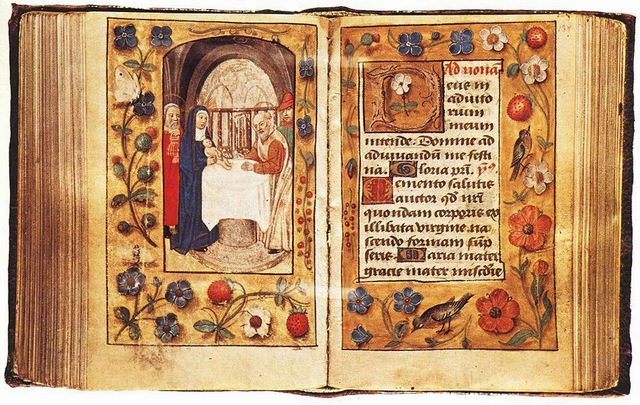 Ad nonā
eus in
adiuto
rium
meum
intende. Domine ad
adiuuandū me festi
na. Gloria pri.
Memento salutis
auctor qd nr̄i
quondam corporis ex
illibata virgine na
scendo formam sūp
seris. Maria mater
gracie mater miscdie